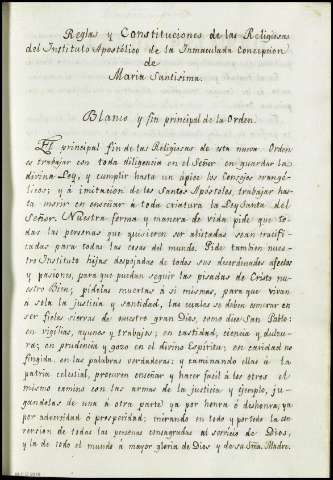 Reglas y Constituciones de las Religiosas
del Instituto Apostólico de la Inmaculada Concepcion
de
Maria Santisima.
Blanco y fin principal de la Orden.
El principal fin de las Religiosas de esta nueva Orden
es trabajar con toda diligencia en el Señor en guardar la
divina Ley, y cumplir hasta un ápice los Consejos evangé-
licos; y á imitacion de los Santos Apóstoles, trabajar has-
ta morir en enseñar á toda criatura la Ley Santa del
Señor. Nuestra forma y manera de vida pide que to-
das las personas que quisieren ser alistadas sean crucifi-
cadas para todas las cosas del mundo. Pide tambien nues-
tro Instituto hijas despojadas de todos sus desordenados afectos
y pasiones, para que puedan seguir las pisadas de Cristo nu-
estro Bien; pidelas muertas á si mismas, para que vivan
á sola la justicia y santidad, las cuales se deben esmerar en
ser fieles siervas de nuestro gran Dios, como dice San Pablo:
en vigilias, ayunos y trabajos; en castidad, ciencia y dulzu-
ra; en prudencia y gozo en el divino Espíritu; en caridad no
fingida, en las palabras verdaderas; y caminando ellas á la
patria celestial, procuren enseñar y hacer facil á los otros el
mismo camino con las armas de la justicia y ejemplo, ju-
gandolas de una á otra parte ya por honra ó deshonra, ya
por adversidad ó prosperidad; mirando en todo y por todo la con
version de todas las personas consagradas al servicio de Dios,
y la de todo el mundo á mayor gloria de Dios y de su Sma. Madre.